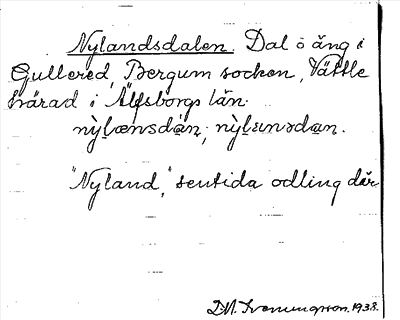 Nylandsdalen. Dal o äng i
Gullered, Bergum socken, Vättle
härad i Älfsborgs län.
nỳl̲ænsdàn; nỳl̲ünsdan.
"Nyland," sentida odling där
1938.